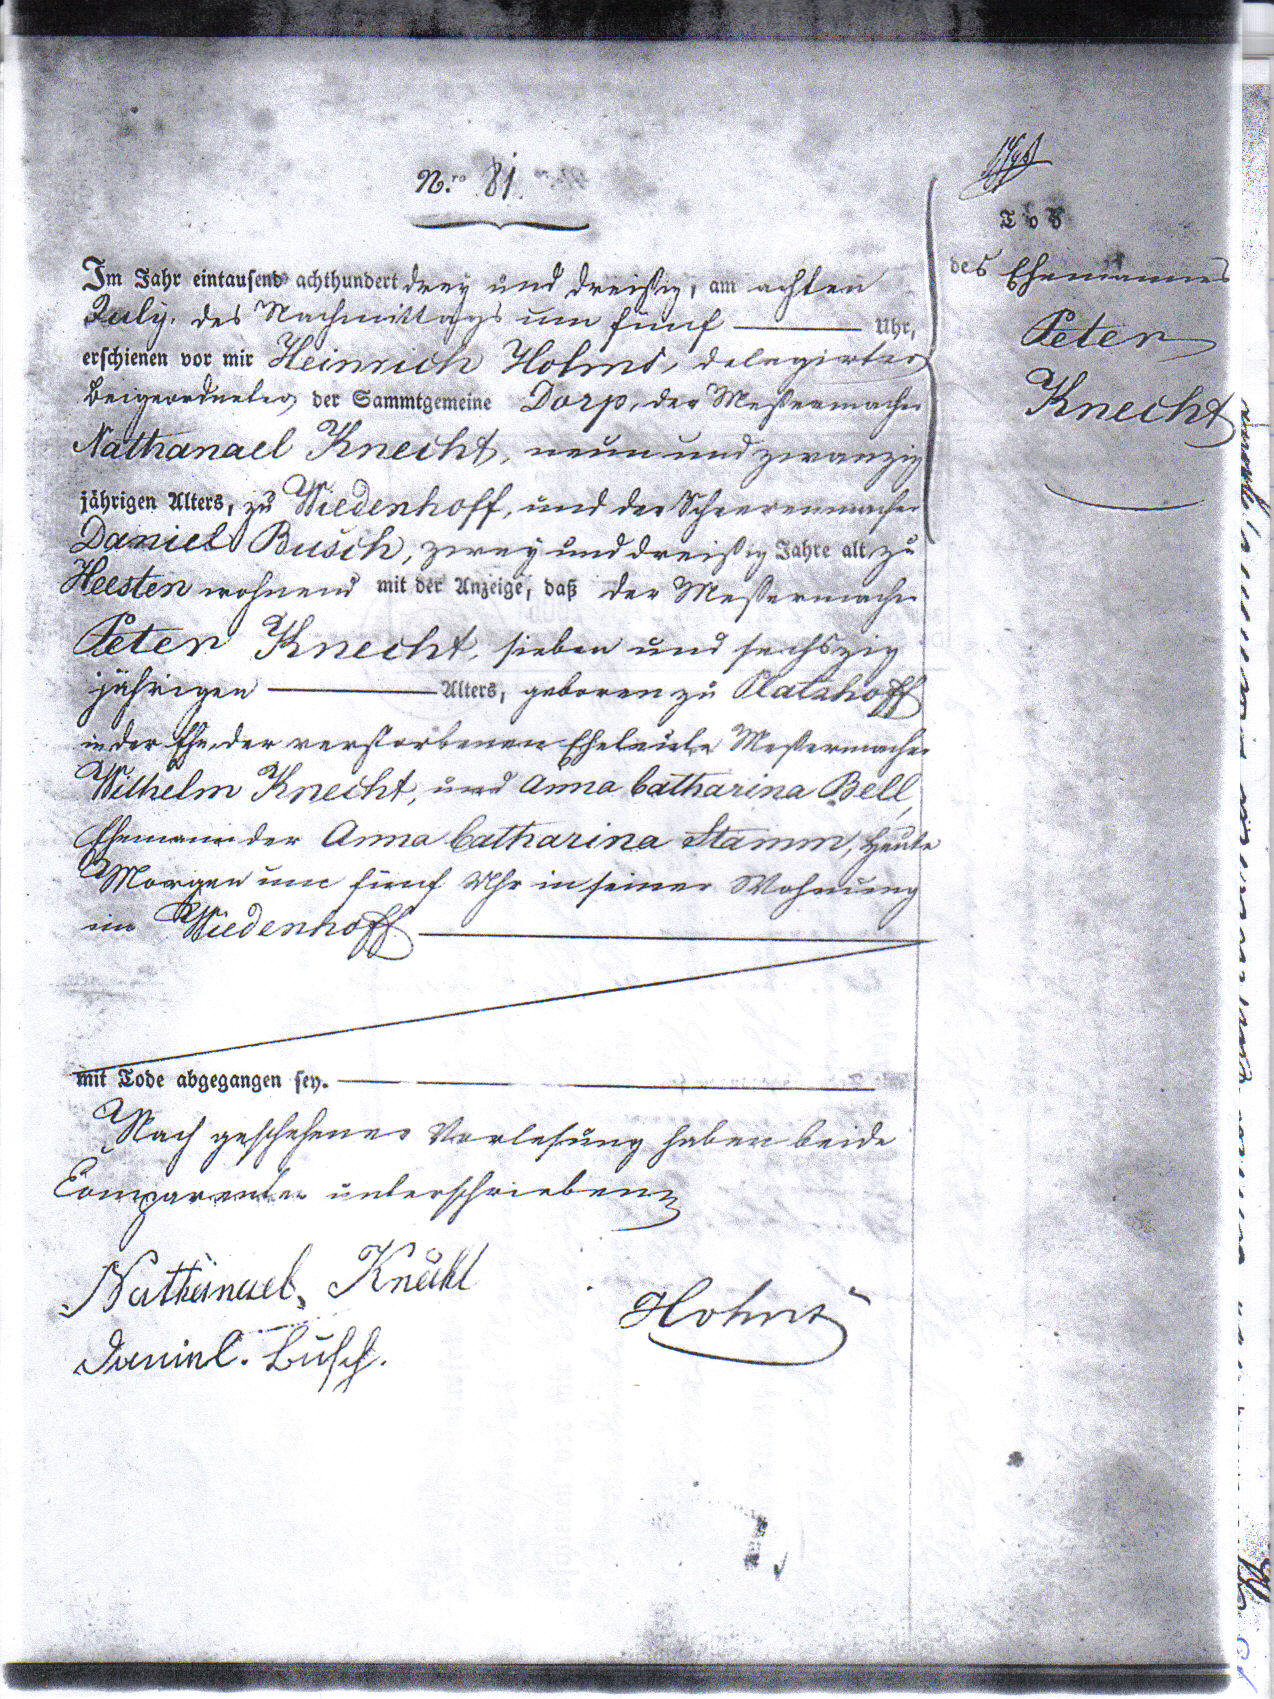 N.ro 81.
Tod
des Ehemannes
Peter
Knecht
Im Jahr eintausend achthundert drey und dreißig, am achten
July, des Nachmittags um fünf Uhr,
erschienen vor mir Heinrich Hohns, delegirter
Beigeordneter der Sammtgemeine Dorp, der Messermacher
Nathanael Knecht, neun und zwanzig
jährigen Alters, zu Wiedenhoff, und der Scheerenmacher
Daniel Busch, zwey und dreißig Jahre alt, zu
Heesten wohnend mit der Anzeige, daß der Messermacher
Peter Knecht, sieben und sechszig
jährigen Alters, geboren zu
in der Ehe der verstorbenen Eheleute Messermacher
Wilhelm Knecht, und Anna Catharina Bell,
Ehemann der Anna Catharina Stamm, heute
Morgen um fünf Uhr in seiner Wohnung
im Wiedenhoff
mit Tode abgegangen sey.
Nach geschehener Vorlesung haben beide
Comparenten unterschrieben
Nathanael Knecht
Daniel Busch.
Hohns